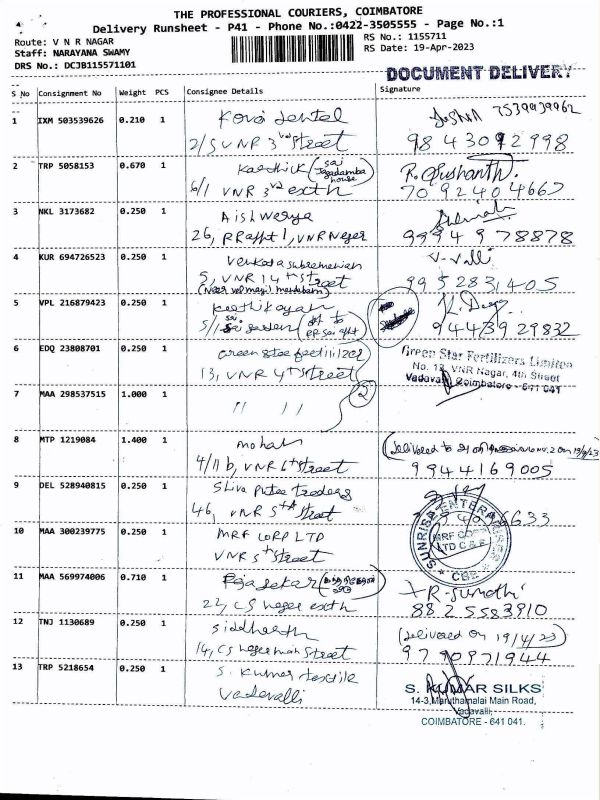 THE PROFESSIONAL COURIERS, COIMBATORE
Delivery Runsheet - P41 - Phone No.:0422-3505555 - Page No.:1
Route: V N R NAGAR
RS No.: 1155711
Staff: NARAYANA SWAMY
RS Date: 19-Apr-2023
DRS No.: DCJB115571101
DOCUMENT DELIVERY
S No Consignment No Weight PCS Consignee Details Signature
1 IXM 503539626 0.210 1 7539939962
2/5 VNR 3rd Street 98430 92998
2 TRP 5058153 0.670 1 Karthick (Sai Jagadamba house)
6/1 VNR 3rd exth 7092404667
3 NKL 3173682 0.250 1 Aishwerya
26, PR Appt 1, VNR Neger 9994978878
4 KUR 694726523 0.250 1 Venkatasubramenian V-Valli
5, VNR 14th Street 9952831405
5 VPL 216879423 0.250 1 Karthikayah
94439 29832
6 EDQ 23808701 0.250 1
13, VNR 4th Street
Green Star Fertilizers Limited
No. 13, VNR Nagar, 4th Street
Vadavalli, Coimbatore - 641 041
7 MAA 298537515 1.000 1 " "
2
8 MTP 1219084 1.400 1 Mohan
4/11 b, VNR 6th Street 9944169005
9 DEL 528940815 0.250 1 Shiva Putee Traders
46, VNR 5th Street
SUNRISE ENTERPRISES
MRF CORP
LTD C & F
CBE
10 MAA 300239775 0.250 1 MRF CORP LTD
VNR 5th Street
11 MAA 569974006 0.710 1 Rajasekar R-Sumathi
22, CS neger exth 8825583910
12 TNJ 1130689 0.250 1 Siddharth (Delivered on 19/4/23)
14, CS neger main Street 9790971944
13 TRP 5218654 0.250 1 S. Kumer textile
Vadavalli
S. KUMAR SILKS
14-3, Maruthamalai Main Road,
Vadavalli,
COIMBATORE - 641 041.